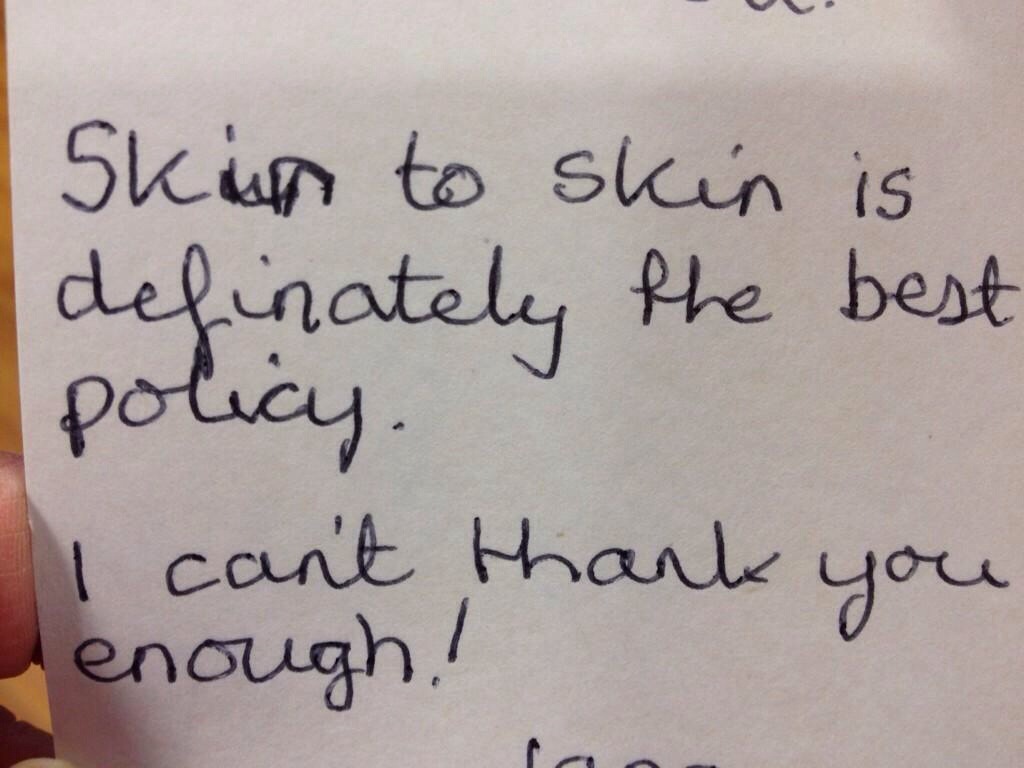 Skin to skin is
definately the best
policy.
I can't thank you
enough!